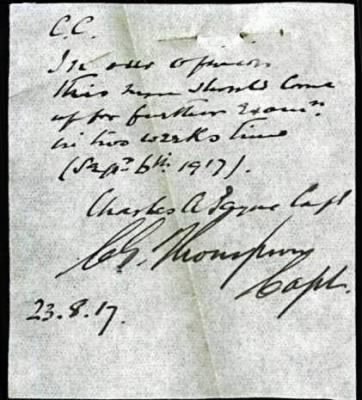 C.C.
In our opinion
this man should come
up for further Examn.
in two weeks time
(Sept 6th 1917).
Charles A Capt
C G. Thompson
Capt.
23.8.17.